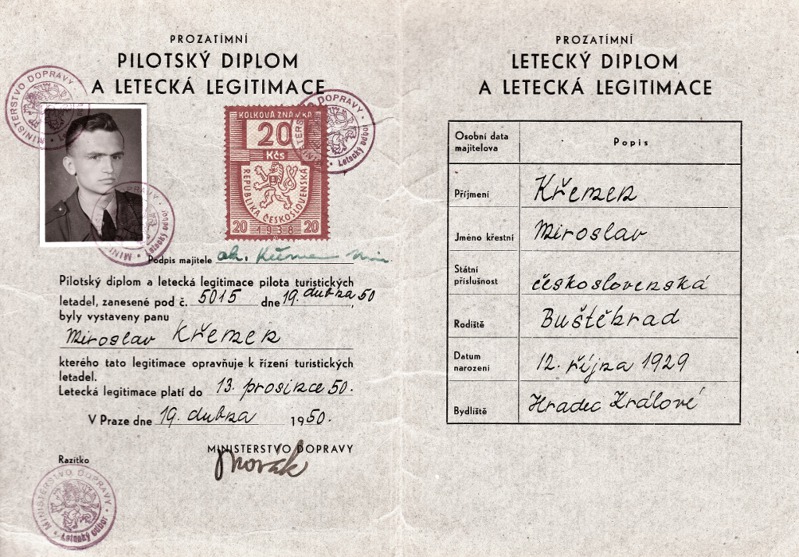 PROZATÍMNÍ
PILOTSKÝ DIPLOM
A LETECKÁ LEGITIMACE
MINISTERSTVO DOPRAVY
KOLKOVÁ ZNÁMKA
20
Kčs
REPUBLIKA ČESKOSLOVENSKÁ
20 1938 20
MINISTERSTVO DOPRAVY • Letecký odbor •
Podpis majitele
Pilotský diplom a letecká legitimace pilota turistických
letadel, zanesené pod č. 5015 dne 19. dubna, 50
byly vystaveny panu
Miroslav Křemen
kterého tato legitimace opravňuje k řízení turistických
letadel.
Letecká legitimace platí do 13. prosince 50.
V Praze dne 19. dubna 1950.
MINISTERSTVO DOPRAVY
Novák
Razítko
MINISTERSTVO DOPRAVY • Letecký odbor •
PROZATÍMNÍ
LETECKÝ DIPLOM
A LETECKÁ LEGITIMACE
Osobní data majitelova Popis
Příjmení Křemen
Jméno křestní Miroslav
Státní příslušnost československá
Rodiště Buštěhrad
Datum narození 12. října 1929
Bydliště Hradec Králové